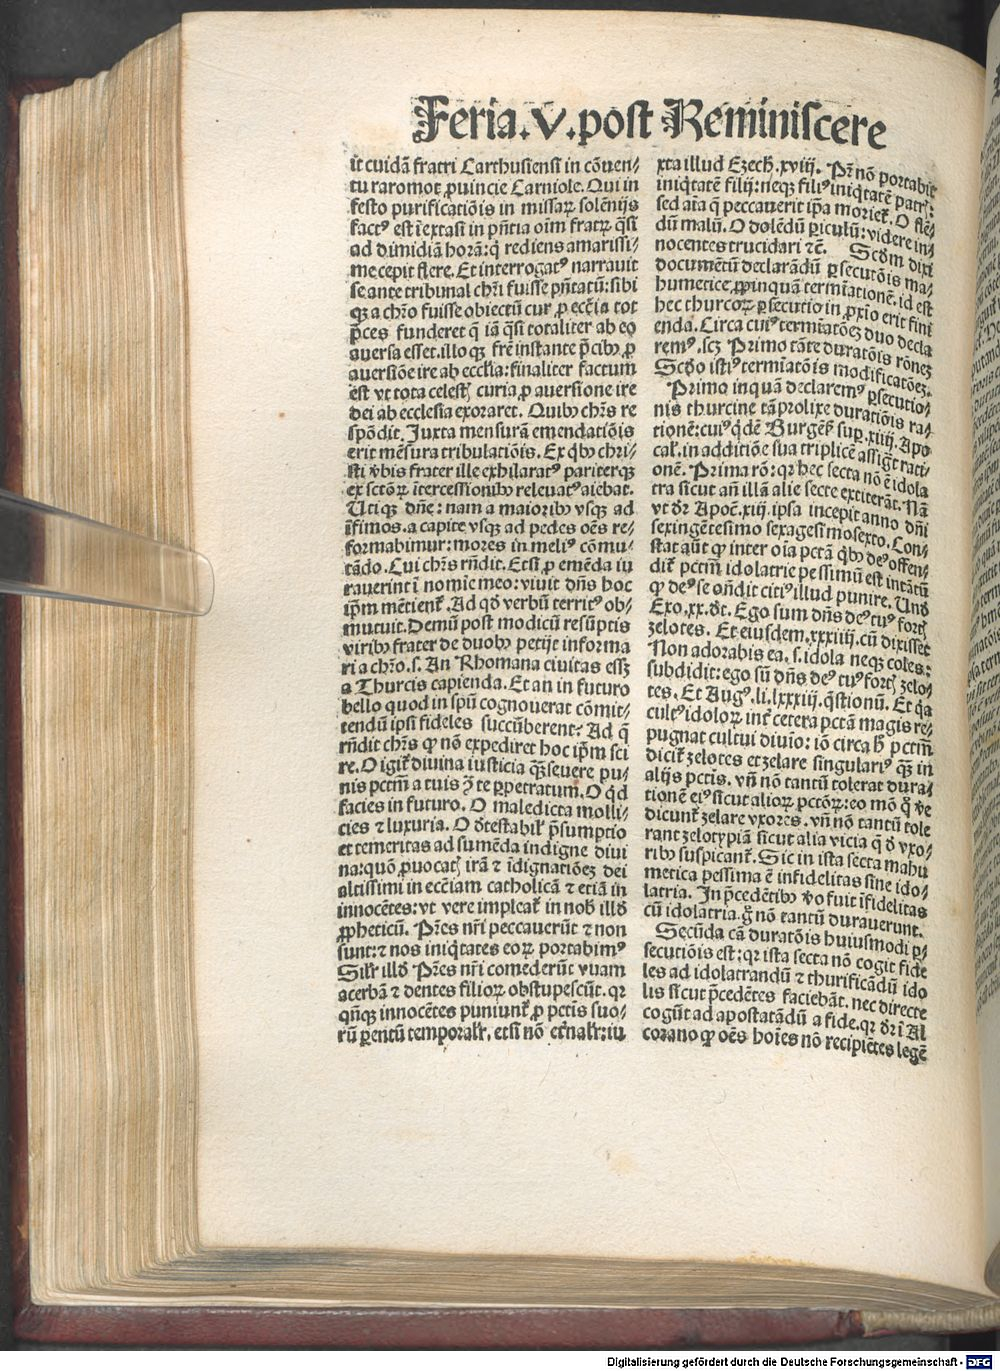 Feria.V.post Reminiscere
it cuidã fratri Carthusiensi in cõuen⸗
tu raromot ꝓuincie Carniole. Qui in
festo purificatiõis in missaꝝ solẽnijs
fact⁹ est ĩ extasi in pñtia oĩm fratꝝ q̃si
ad dimidiã horã: q̇ rediens amarissi⸗
me cepit flere. Et interrogat⁹ narrauit
se ante tribunal chr̃i fuisse pñtatũ: sibi
qꝫ a chr̃o fuisse obiectũ cur ꝓ ecc̃ia tot
p̃ces funderet q̃ iã q̃si totaliter ab eo
auersa esset. illo qꝫ fr̃e instante p̃cibꝰ ꝓ
auersiõe ire ab eccl̃ia: finaliter factum
est vt tota celestꝭ curia ꝓ auersione ire
dei ab ecclesia exoraret. Quibꝰ chr̃s re
spõdit. Juxta mensurã emendatiõis
erit mẽsura tribulatiõis. Ex q̇bꝰ chri⸗
sti v̾bis frater ille exhilarat⁹ pariterqꝫ
ex sctõꝝ ĩtercessionibꝰ releuat⁹ aiebat.
Utiqꝫ dñe: nam a maioribꝰ vsqꝫ ad
ĩfimos. a capite vsqꝫ ad pedes oẽs re⸗
formabimur: mores in meli⁹ cõmu⸗
tãdo. Cui chr̃s rñdit. Etsi ꝓ emẽda iu
rauerint ĩ nomie meo: viuit dñs hoc
ip̃m mẽtient᷑. Ad qd̾ verbũ territ⁹ ob⸗
mutuit. Demũ post modicũ resũptis
viribꝰ frater de duobꝰ petijt informa
ri a chr̃o. s. An Rhomana ciuitas essꝫ
a Thurcis capienda. Et an in futuro
bello quod in sp̃u cognouerat cõmit⸗
tendũ ipsi fideles succũberent: Ad q̃
rñdit chr̃s ꝙ nõ expediret hoc ip̃m sci
re. O igit᷑ diuina iusticia qꝫ̃ seuere pu⸗
nis pctm̃ a tuis ↄ̃ te ꝑpetratum. O q̇d
facies in futuro. O maledicta molli⸗
cies ⁊ luxuria. O d̾testabil᷑ p̃sumptio
et temeritas ad sumẽda indigne diui
na: quõ ꝓuocatꝭ irã ⁊ ĩdignatiõeꝫ dei
altissimi in ecc̃iam catholicã ⁊ etiã in
innocẽtes: vt vere impleat᷑ in nob̾ illd̾
ꝓpheticũ. Pr̃es nr̃i peccauerũt ⁊ non
sunt: ⁊ nos iniq̇tates eoꝝ portabim⁹
Sil᷑r illd̾ Pr̃es nr̃i comederũt vuam
acerbã ⁊ dentes filioꝝ obstupescũt. qꝛ
qñqꝫ innocẽtes puniunt᷑ ꝓ pctĩs suo⸗
rũ ꝑentũ temporal᷑r, etsi nõ et̾nal᷑r: iu
xta illud Ezech̾. xviij. Pr̃ nõ portabit
iniq̇tatẽ filij: neqꝫ fili⁹ iniq̇tatẽ patrꝭ:
sed aĩa q̃ peccauerit ip̃a moriet᷑. O flẽ⸗
dũ malũ. O dolẽdũ ꝑiculũ: videre in⸗
nocentes trucidari ⁊c̃. Scd̾m dixi
documẽtũ declarãdũ ꝑsecutõis ma⸗
humetice, ꝓpinquã termĩationẽ. id est
hec thurcoꝝ ꝑsecutio in ꝓxĩo erit fini
enda. Circa cui⁹ termĩatõeꝫ duo decla
rem⁹. scꝫ Primo tãte duratõis rõneꝫ
Scd̾o isti⁹ termĩatõis modificatõeꝫ.
Primo inquã declarem⁹ ꝑsecutio⸗
nis thurcine tã prolixe duratiõis ra⸗
tionẽ: cui⁹ q̇dẽ Burgeñ. sup. xiiij. Apo
cal᷑. in additiõe sua triplicẽ assigt̃ rati
onẽ. Prima rõ: qꝛ hec secta nõ ẽ idola
tra sicut añ illã alie secte extiterãt. Nã
vt dr̃ Apoc̃. xiij. ipsa incepit anno dñi
sexingẽtesimo sexagesimosexto. Con⸗
stat aũt ꝙ inter oĩa pctã q̇bꝰ de⁹ offen⸗
dit᷑ pctm̃ idolatrie pessimũ est intãtũ
ꝙ de⁹ se oñdit citi⁹ illud punire. Und̾
Exo. xx. d̾t. Ego sum dñs de⁹ tu⁹ fortꝭ
zelotes. Et eiusdem. xxxiiij. cũ dixisset
Non adorabis ea. s. idola neqꝫ coles:
subdidit: ego sũ dñs de⁹ tu⁹ fortꝭ zelo⸗
tes. Et Aug⁹. li. lxxxiij. q̃stionũ. Et q̇a
cult⁹ idoloꝝ int᷑ cetera pctã magis re⸗
pugnat cultui diuĩo: iõ circa h̾ pctm̃
dicit᷑ zelotes et zelare singulari⁹ qꝫ̃ in
alijs pctĩs. vñ nõ tantũ tolerat dura⸗
tionẽ ei⁹ sicut alioꝝ pctõꝝ: eo mõ q̊ v̾e
dicunt᷑ zelare vxores. vñ nõ tantũ tole
rant zelotypiã sicut alia vicia q̃ d̾ vxo⸗
ribꝰ suspicant᷑. Sic in ista secta mahu
metica pessima ẽ infidelitas sine ido⸗
latria. In p̃cedẽtibꝰ v̾o fuit ĩfidelitas
cũ idolatria. g̊ nõ tantũ durauerunt.
Secũda cã duratõis huiusmodi ꝑ⸗
secutiõis est: qꝛ ista secta nõ cogit fide
les ad idolatrandũ ⁊ thurificãdũ ido
lis sicut p̃cedẽtes faciebãt. nec directe
cogũt ad apostatãdũ a fide. qꝛ dr̃ ĩ Al
corano ꝙ oẽs hoĩes nõ recipiẽtes legẽ
Digitalisierung gefördert durch die Deutsche Forschungsgemeinschaft - DFG